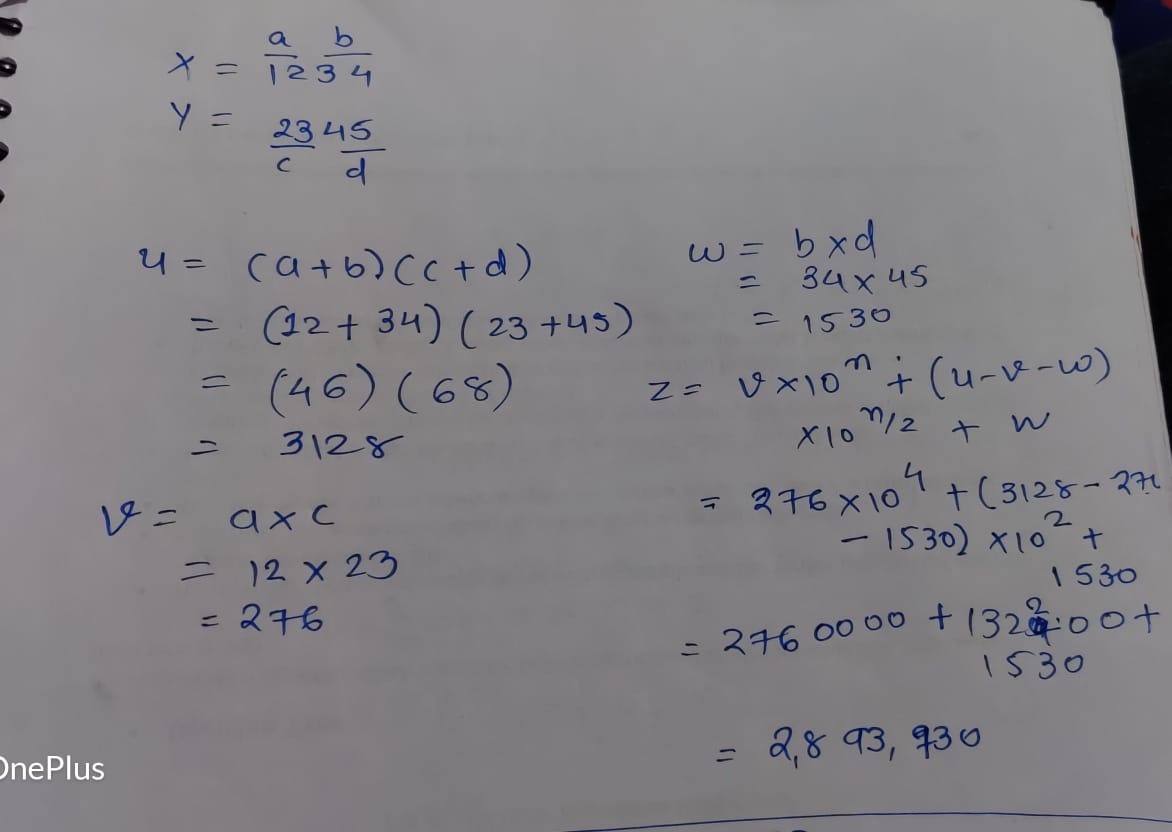 a b
X = 12 34
Y = 23 45
c d
u = (a+b)(c+d)
= (12+34)(23+45)
= (46)(68)
= 3128
v = a×c
= 12 × 23
= 276
w = b×d
= 34×45
= 1530
z = v×10^n + (u-v-w)
×10^n/2 + w
= 276×10^4 + (3128-276
- 1530) ×10^2 +
1530
= 276 0000 + 132200 +
1530
= 2,893,730
OnePlus